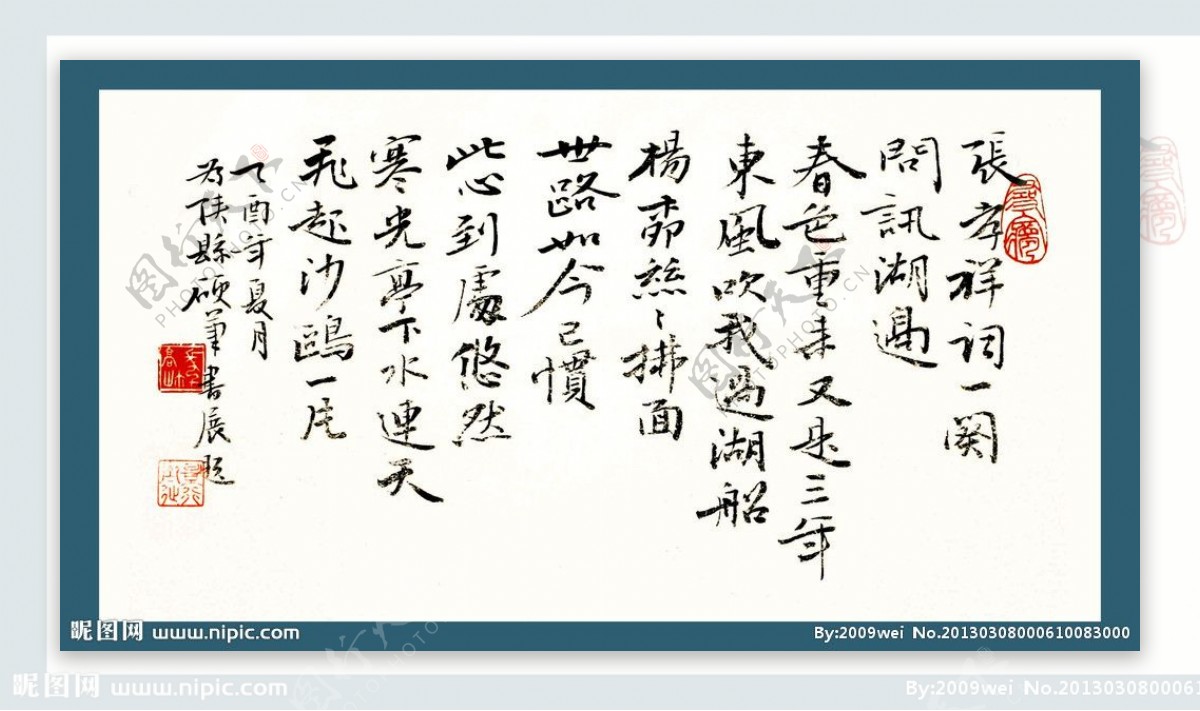 張孝祥詞一闋
問訊湖邊
春色重来又是三年
東風吹我過湖船
楊柳絲〻拂面
世路如今已慣
此心到處悠然
寒光亭下水連天
飛起沙鷗一片
乙酉年夏月
为陕縣碩筆書展題
昵图网 www.nipic.com
By:2009wei No.20130308000610083000
昵图网 www.nipic.com
By:2009wei No.2013030800061